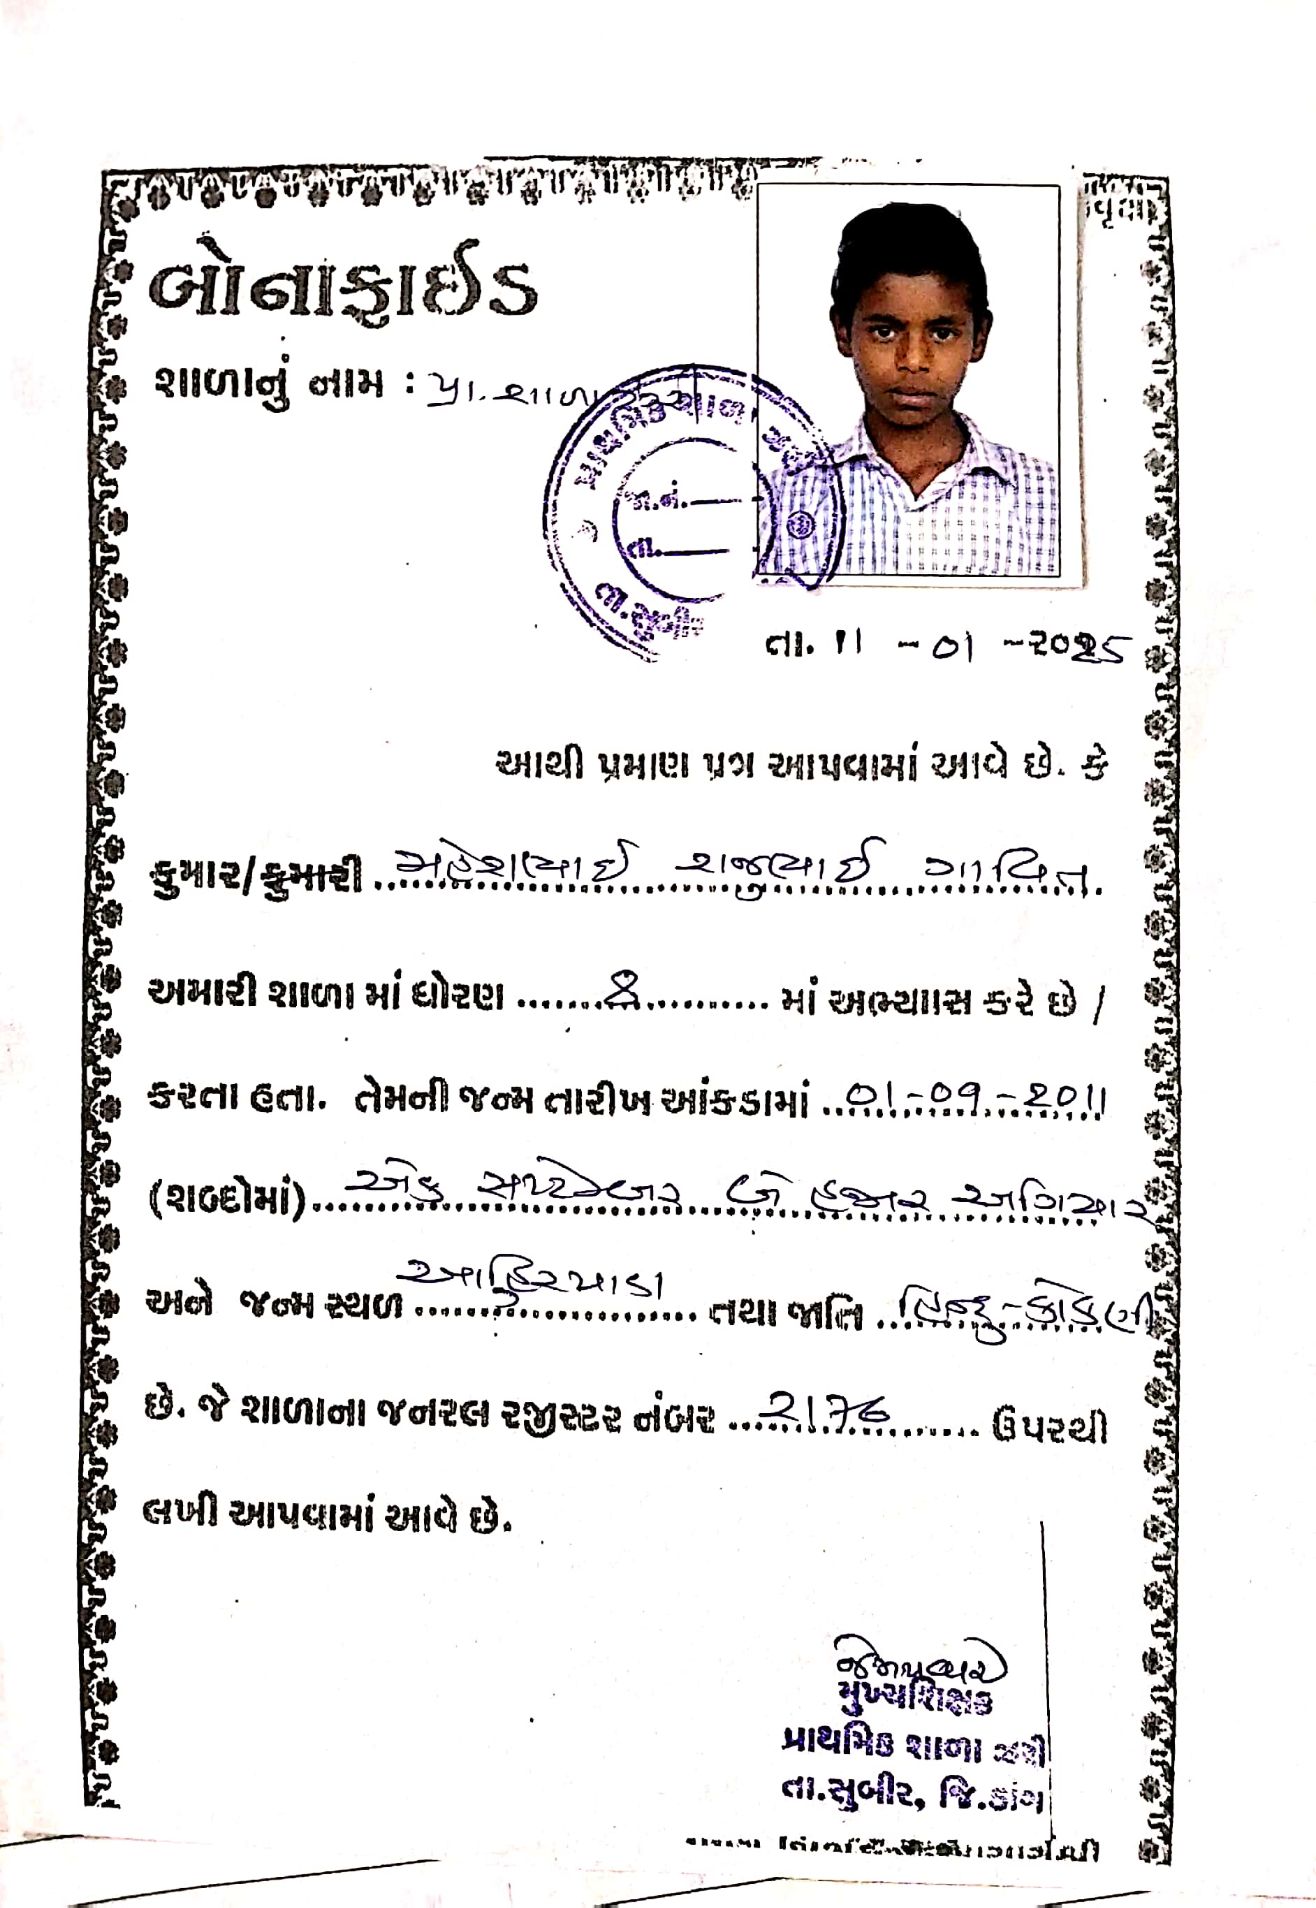 વૃક્ષ
બોનાફાઈડ
શાળાનું નામ : પ્રા. શાળા
પ્રાથમિક શાળા
જા.નં.
તા.
તા.સુબીર
તા. 11 - 01 - ૨૦25
આથી પ્રમાણ પત્ર આપવામાં આવે છે. કે
કુમાર/કુમારી મહેશભાઈ રાજુભાઈ ગાવિત.
અમારી શાળા માં ધોરણ 8 માં અભ્યાાસ કરે છે /
કરતા હતા. તેમની જન્મ તારીખ આંકડામાં 01-09-2011
(શબ્દોમાં) એક સપ્ટેમ્બર બે હજાર અગિયાર
અને જન્મ સ્થળ આહિરપાડા તથા જાતિ હિન્દુ-કોકણી
છે. જે શાળાના જનરલ રજીસ્ટર નંબર 2176 ઉપરથી
લખી આપવામાં આવે છે.
મુખ્યશિક્ષક
પ્રાથમિક શાળા ઝરી
તા.સુબીર, જિ.ડાંગ